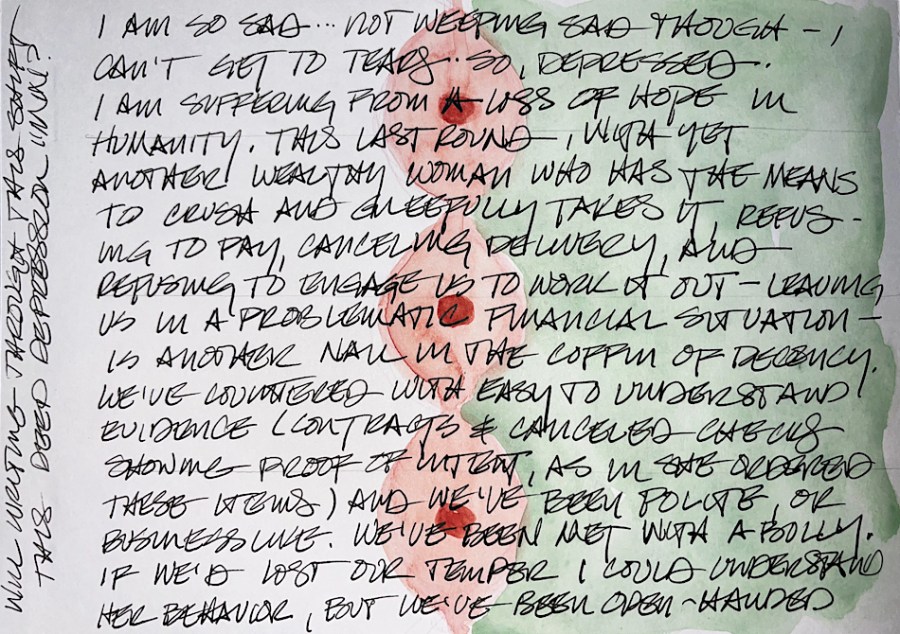 I AM SO SAD... NOT WEEPING SAD THOUGH - I
CAN'T GET TO TEARS.. SO, DEPRESSED..
I AM SUFFERING FROM A LOSS OF HOPE IN
HUMANITY. THIS LAST ROUND, WITH YET
ANOTHER WEALTHY WOMAN WHO HAS THE MEANS
TO CRUSH AND GLEEFULLY TAKES IT REFUS-
ING TO PAY, CANCELING DELIVERY, AND
REFUSING TO ENGAGE US TO WORK IT OUT - LEAVING
US IN A PROBLEMATIC FINANCIAL SITUATION -
IS ANOTHER NAIL IN THE COFFIN OF DECENCY.
WE'VE COUNTERED WITH EASY TO UNDERSTAND
EVIDENCE (CONTRACTS & CANCELED CHECKS
SHOWING PROOF OF INTENT, AS IN SHE ORDERED
THESE ITEMS) AND WE'VE BEEN POLITE, OR
BUSINESS LIKE. WE'VE BEEN MET WITH A BULLY.
IF WE'D LOST OUR TEMPER I COULD UNDERSTAND
HER BEHAVIOR, BUT WE'VE BEEN OPEN-HANDED
WILL WRITING THROUGH THIS SHIFT
THIS DEEP DEPRESSION I'M IN?